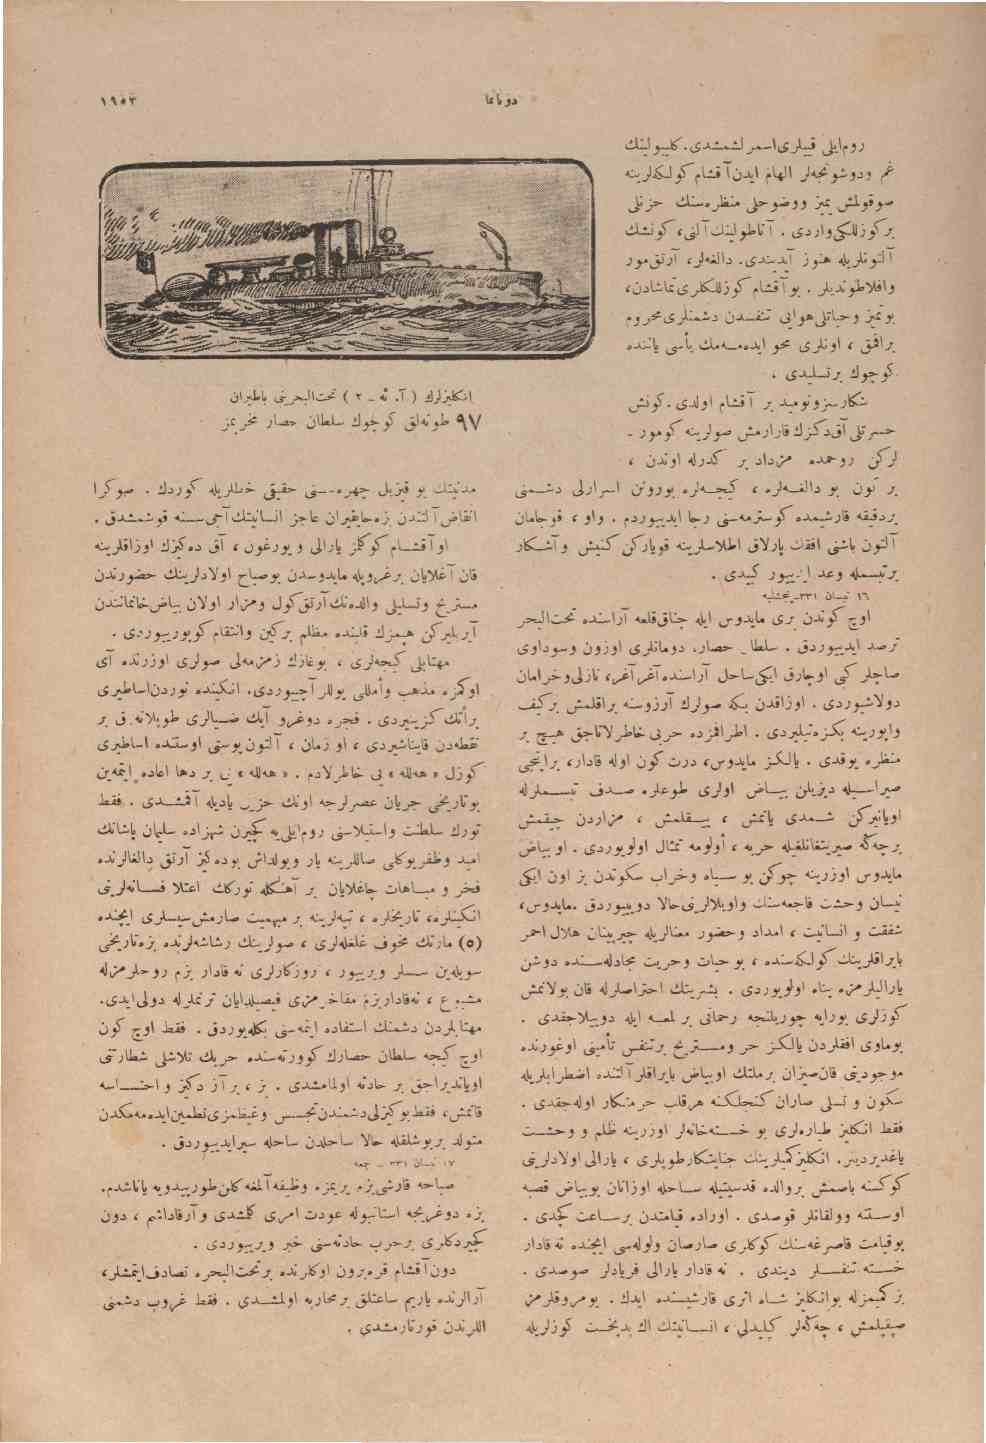 دونانما
١٩٥٣
روم‌ايلی قييلری‌اسمرلشمشدی. كليبولينك
غم ودوشونجه‌لر الهام ايدن آقشام كولكه‌لرينه
صوقولمش تميز ووضوحلی منظره‌سنك حزنلی
بركوزللكی‌واردی. آناطولينك آلنی، كونشك
آلتونلريله هنوز آيدنیدی. دالغه‌لر، آرتق‌مور
وافلاطونديلر. بوآقشام كوزللكلری‌تماشادن،
بوتميز وحياتلی‌هوايی تنفسدن دشمنلری‌محروم
براقمق، اونلری محو ايده‌مه‌مك يأسی ياننده
كوچوك برتسليدی.
شكارسزونوميد بر آقشام اولدی. كونش
حسرتلی آق‌دكزك قارارمش صولرينه كومور-
لركن روحمده مزداد بر كدرله اوندن،
بر تون بو دالغه‌لره، كيجه‌لره بورونن اسرارلی دشمنی
بردقيقه قارشيمده كوسترمه‌سنی رجا ايدييوردم. واو، قوجامان
آلتون باشنی افقك پارلاق اطلاسلرينه قوياركن كنيش وآشكار
برتبسمله وعد ايدييور كبيدی.
١٦ نيسان ٣٣١-پنجشنبه
اوچ كوندن بری مايدوس ايله چناق‌قلعه آراسنده تحت‌البحر
ترصد ايدييوردق. سلطان حصار، دومانلری اوزون وسوداوی
صاچلر كبی اوچارق ايكی‌ساحل آراسنده آغرآغر، نازلی‌وخرامان
دولاشيوردی. اوزاقدن بكه صولرك آرزوسنه براقلمش بركيف
واپورينه بكزه‌تيليردی. اطرافمزده حربی خاطرلاتاجق هيچ بر
منظره يوقدی. يالكز مايدوس، درت كون اوله قادار، برانجی
صيراسيله ديزيلن بياض اولری طوعلره صدف تبسملرله
اويانيركن شمدی ياتمش، ييقلمش، مزاردن چيقمش
برچه‌كه صيريتغانلغيله حربه، اولومه تمثال اولويوردی. اوبياض
مايدوس اوزرينه چوكن بو سياه وخراب سكوتدن بز اون ايكی
نيسان وحشت فاجعه‌سنك واويلالرينی‌حالا دوييوردق. مايدوس،
شفقت و انسانيت، امداد وحضور معنالريله چيرپينان هلال احمر
بايراقلرينك كولكه‌سنده، بوحيات وحريت مجادله‌سنده دوشن
يارالیلرمزه پناه اولويوردی. بشريتك احتراصلرله قان بولانمش
كوزلری بورايه چوريلنجه رحمانی بر لمعه ايله دوييلاجقدی.
بوماوی افقلردن يالكز حر ومستريح برتنفس تأمينی اوغورنده
موجوديتی قان‌صيزان برملتك اوبياض بايراقلر آلتنده اضطرابلريله
سكون و تسلی صاران كنجلكنه هرقلب حرمتكار اوله‌جقدی.
فقط انكليز طياره‌لری بو خسته‌خانه‌لر اوزرينه ظلم و وحشت
ياغديرديلر. انكليزكميلرينك جنايتكارطوپلری، يارالی اولادلرينی
كوكسنه باصمش بروالده قدسيتيله ساحله اوزانان بوبياض قصبه
اوستنه وولقانلر قوصدی. اوراده قيامتدن برساعت كچدی.
بوقيامت قاصرغه‌سنك كوكلری صارصان ولوله‌سی ايچنده نه قادار
خسته تنفسلر ديندی. نه قادار يارالی فريادلر صوصدی.
بز كميمزله بوانكليز شاه اثری قارشيسنده ايدك. يومروقلرمز
صيقيلمش، چه‌كه‌لر كيليدلی، انسانيتك اك بدبخت كوزلريله
انكليزلرك (آ. ئه - ٢) تحت‌البحرينی باطيران
٩٧ طونه‌لق كوچوك سلطان حصار مخربمز
مدنيتك بو قيزيل چهره‌سنی حقيقی خطلريله كوردك. صوكرا
انقاض آلتندن بزه‌حايقيران عاجز انسانيتك‌آجی‌سنه قوشمشدق.
اوآقشام كوكلمز يارالی و يورغون، آق ده‌كيزك اوزاقلرينه
قان آغلايان برغروبله مايدوسدن بوصباح اولادلرينك حضورندن
مستريح وتسليلی والده‌نك‌آرتق‌كول ومزار اولان بياض‌خانمانندن
آيريليركن هپمزك قلبنده مظلم بركين وانتقام‌كوپورييوردی.
مهتابلی كيجه‌لری، بوغازك زمزمه‌لی صولری اوزرنده آی
اوكمزه مذهب وأمللی يوللر آچييوردی. انكينده نوردن‌اساطيری
برأتك كزينيردی. فجره دوغرو آيك ضيالری طوپلانه‌رق بر
نقطه‌دن قايناشيردی، او زمان، آلتون پوستی اوستنده اساطيری
كوزل «هه‌لله» يی خاطرلادم. «هه‌لله» يی بر دها اعاده ايتمه‌ين
بوتاريخی جريان عصرلرجه اونك حزين ياديله آقمشدی. فقط
تورك سلطنت واستيلاسنی روم‌ايلی‌يه كچيرن شهزاده سليمان پاشانك
اميد وظفريوكلی صاللرينه يار ويولداش بوده‌كيز آرتق دالغالرنده
فخر و مباهات چاغلايان بر آهنكله توركك اعتلا فسانه‌لرينی
انكينلره، تاريخلره، تپه‌لرينه بر مبهميت صارمش‌سيسلری ايچنده
(٥) مارتك مخوف غلغله‌لری، صولرينك رشاشه‌لرنده بزه‌تاريخی
سويله‌ين سسلر ويرييور، روزكارلری نه قادار بزم روحلرمزله
مشبوع، نه‌قاداربزم مفاخرمزی فيصيلدايان ترنملرله دولی‌ايدی.
مهتابلردن دشمنك استفاده ايتمه‌سنی بكله‌يوردق. فقط اوچ كون
اوچ كيجه سلطان حصارك كوورته‌سنده حربك تلاشلی شطارتنی
اوياندیراجق بر حادثه اولمامشدی. بز، برآز دكيز و احتساسه
قاتمش، فقط‌بوكيزلی‌دشمندن‌تجسس وغيظمزی‌تطمين‌ايده‌مه‌مكدن
متولد بربوشلقله حالا ساحلدن ساحله سيرايدييوردق.
١٧ نيسان ٣٣١ - جمعه
صباحه قارشی‌بزم يريمزه وظيفه‌آلمغه كلن‌طورپيدويه ياناشدم.
بزه دوغريجه استانبوله عودت امری كلمشدی وآرقاداشم، دون
كچيردكلری برحرب حادثه‌سنی خبر ويرييوردی.
دون‌آقشام قره‌برون اوكلرنده برتحت‌البحره تصادف‌ايتمشلر،
آرالرنده ياريم ساعتلق برمحاربه اولمشدی. فقط غروب دشمنی
اللرندن قورتارمشدی.